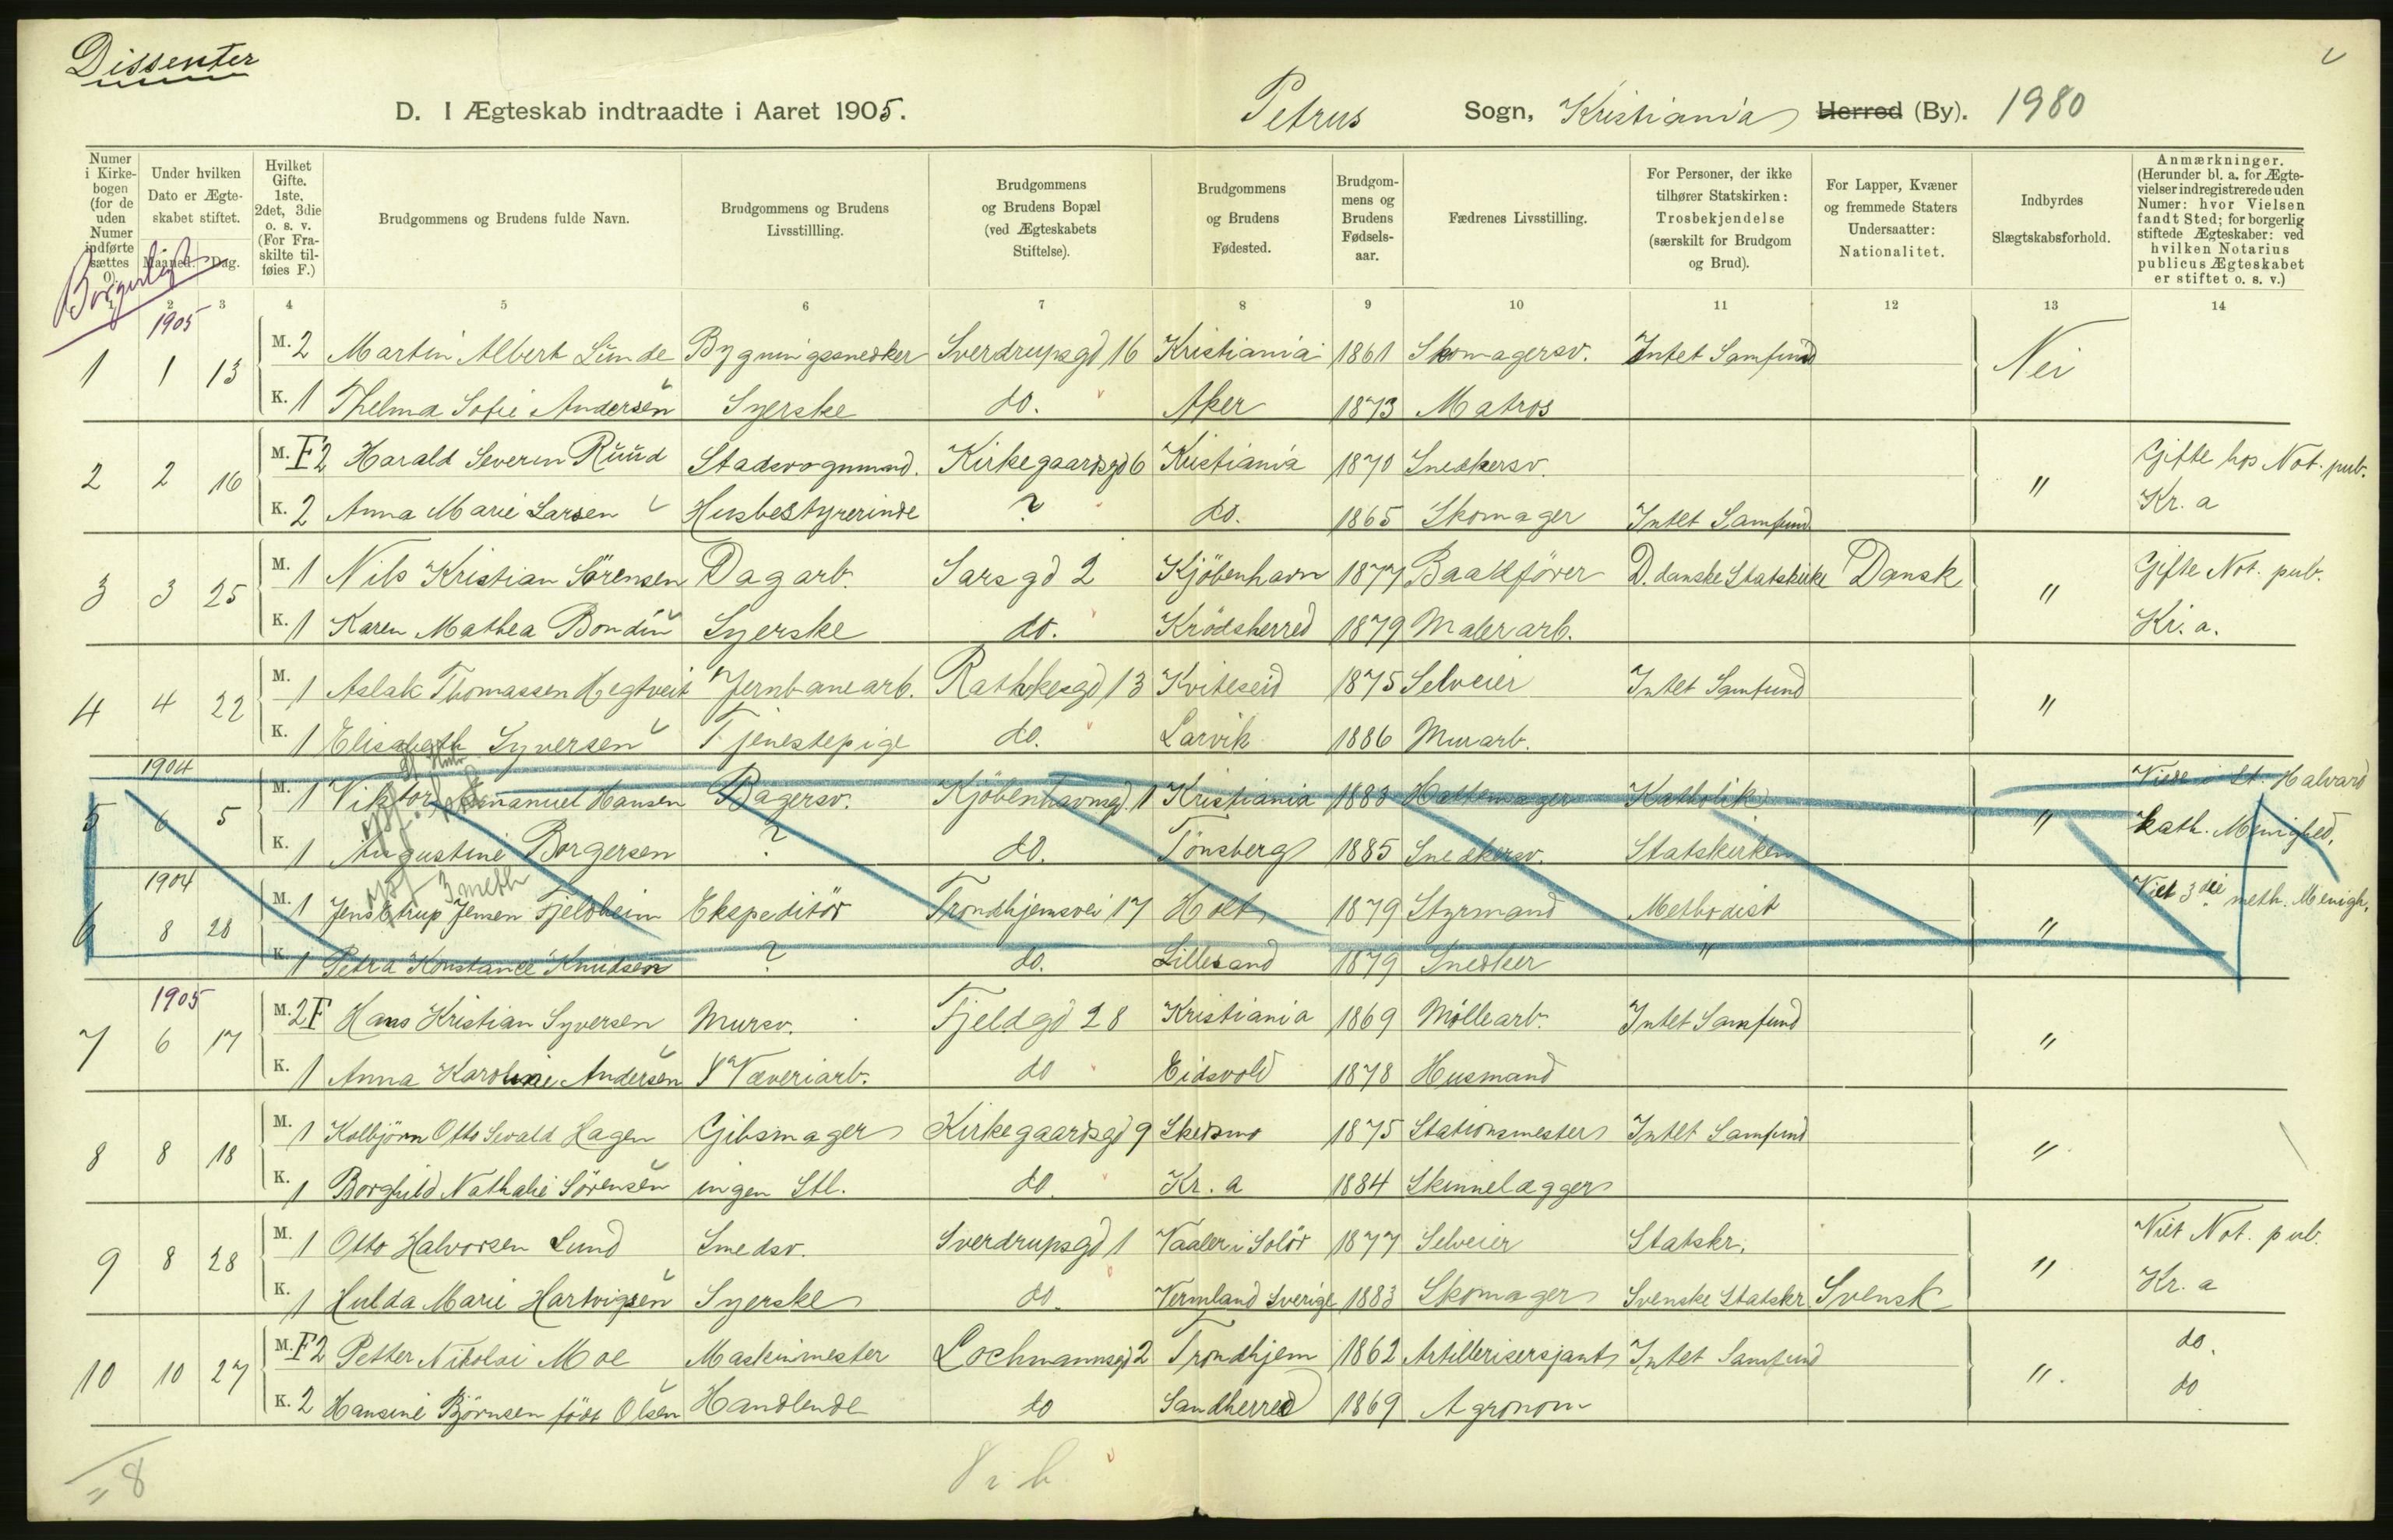 Dissenter
D. I Ægteskab indtraadte i Aaret 1905.
Petrus Sogn, Kristiania Herred (By). 1980
Numer i Kirkebogen (for de uden Numer indførte sættes 0).
Under hvilken Dato er Ægteskabet stiftet.
Maaned. Dag.
Hvilket Gifte. 1ste, 2det, 3die o. s. v. (For Fraskilte tilføies F.)
Brudgommens og Brudens fulde Navn.
Brudgommens og Brudens Livsstillling.
Brudgommens og Brudens Bopæl (ved Ægteskabets Stiftelse).
Brudgommens og Brudens Fødested.
Brudgommens og Brudens Fødselsaar.
Fædrenes Livsstilling.
For Personer, der ikke tilhører Statskirken: Trosbekjendelse (særskilt for Brudgom og Brud).
For Lapper, Kvæner og fremmede Staters Undersaatter: Nationalitet.
Indbyrdes Slægtskabsforhold.
Anmærkninger. (Herunder bl. a. for Ægtevielser indregistrerede uden Numer: hvor Vielsen fandt Sted; for borgerlig stiftede Ægteskaber: ved hvilken Notarius publicus Ægteskabet er stiftet o. s. v.)
Borgerligt
1 2 3 4 5 6 7 8 9 10 11 12 13 14
1905
1 1 13 M. 2 Martin Albert Lunde Bygningssnedker Sverdrupsgd 16 Kristiania 1861 Skomagersv. Intet Samfund Nei
K. 1 Thelma Sofie Andersen Syerske do. Aker 1873 Matros
2 2 16 M. F2 Harald Severin Ruud Stadsvognmand. Kirkegaardsgd 6 Kristiania 1870 Snedkersv. " Gifte hos Not. pub.
K. 2 Anna Marie Larsen Husbestyrerinde ? do. 1865 Skomager Intet Samfund Kr. a
3 3 25 M. 1 Nils Kristian Sörensen Dagarb. Sarsgd 2 Kjöbenhavn 1877 Baadförer D. danske Statskirke Dansk " Gifte Not. pub.
K. 1 Karen Mathea Bondin Syerske do. Krödsherred 1879 Malerarb. Kr. a.
4 4 22 M. 1 Aslak Thomassen Hegtveit Jernbanearb. Rathkesgd 13 Kviteseid 1875 Selveier Intet Samfund "
K. 1 Elisabeth Syversen Tjenestepige do. Larvik 1886 Murarb.
1904
5 6 5 M. 1 Viktor Emanuel Hansen Bagersv. Kjöbenhavnsgd. 1 Kristiania 1883 Hattemager Katholik " Viede i St. Halvard
K. 1 Augustine Borgersen ? do. Tönsberg 1885 Snedkersv. Statskirken kath. Menighed.
1904
6 8 28 M. 1 Jens Estrup Jensen Fjeldheim Ekspeditör Trondhjemsvei 17 Holt 1879 Styrmand Methodist " Viet 3die meth. Menigh.
K. 1 Petra Konstance Knudsen ? do. Lillesand 1879 Snedker "
1905
7 6 17 M. 2F Hans Kristian Syversen Mursv. Fjeldgd 28 Kristiania 1869 Möllearb. Intet Samfund "
K. 1 Anna Karoline Andersen Væveriarb. do Eidsvold 1878 Husmand
8 8 18 M. 1 Kolbjörn Otto Sevald Hagen Gibsmager Kirkegaardsgd 9 Skedsmo 1875 Stationsmester Intet Samfund "
K. 1 Borghild Nathalie Sörensen ingen Stl. do. Kr. a 1884 Skinnelægger
9 8 28 M. 1 Otto Halvorsen Lund Smedsv. Sverdrupsgd 1 Vaaler i Solör 1877 Selveier Statskr. " Viet Not. pub.
K. 1 Hulda Marie Hartvigsen Syerske do. Vermland Sverige 1883 Skomager Svenske Statskr Svensk Kr. a
10 10 27 M. F2 Petter Nikolai Moe Maskinmester Lochmannsgd 2 Trondhjem 1862 Artillerisersjant Intet Samfund " do.
K. 2 Hansine Björnsen födt Olsen Handlende do Sandherred 1869 Agronom do
8